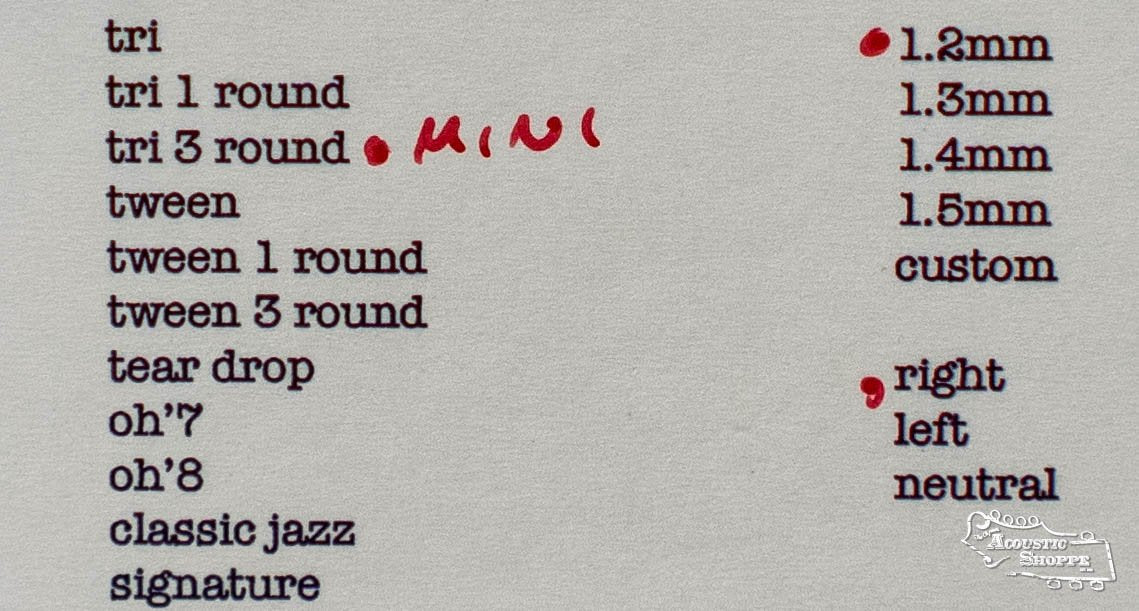 tri
tri 1 round
tri 3 round • MINI
tween
tween 1 round
tween 3 round
tear drop
oh'7
oh'8
classic jazz
signature
• 1.2mm
1.3mm
1.4mm
1.5mm
custom
• right
left
neutral
The Acoustic
Shoppe